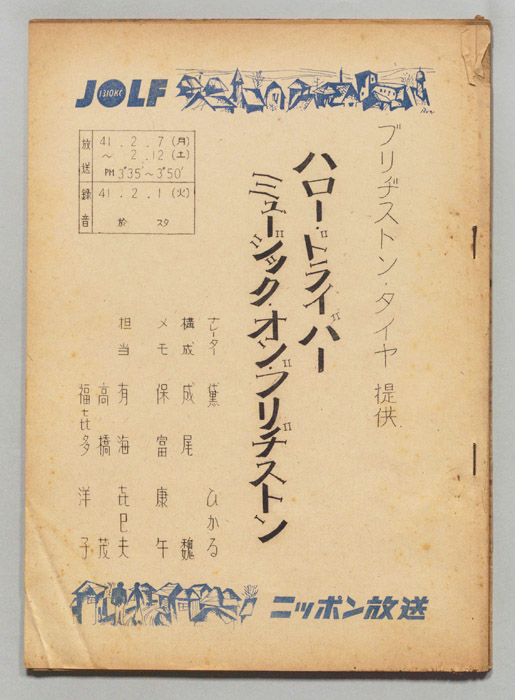 JOLF
1310KC
放送 41.2.7(月)
~2.12(土)
PM 3°35′~3°50′
録音 41.2.1(火)
於 スタ
ブリヂストン・タイヤ 提供
ハロー・ドライバー
ミュージック・オン・ブリヂストン
ナレーター 黛 ひかる
構成 成尾 巍
メモ 保富 康午
担当 有海 㐂巳夫
高橋 茂
福㐂多 洋子
ニッポン放送